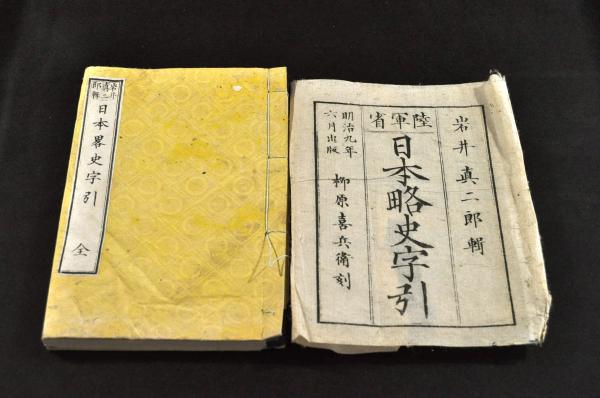 岩井
真二
郎輯
日本畧史字引 全
岩井真二郎輯
陸軍省
日本略史字引
明治九年
六月出版
柳原喜兵衛刻